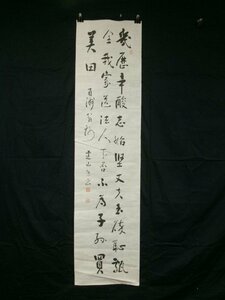 幾歴辛酸志始堅丈夫玉砕恥甎
全我家遺法人知否不為子孫買
美田